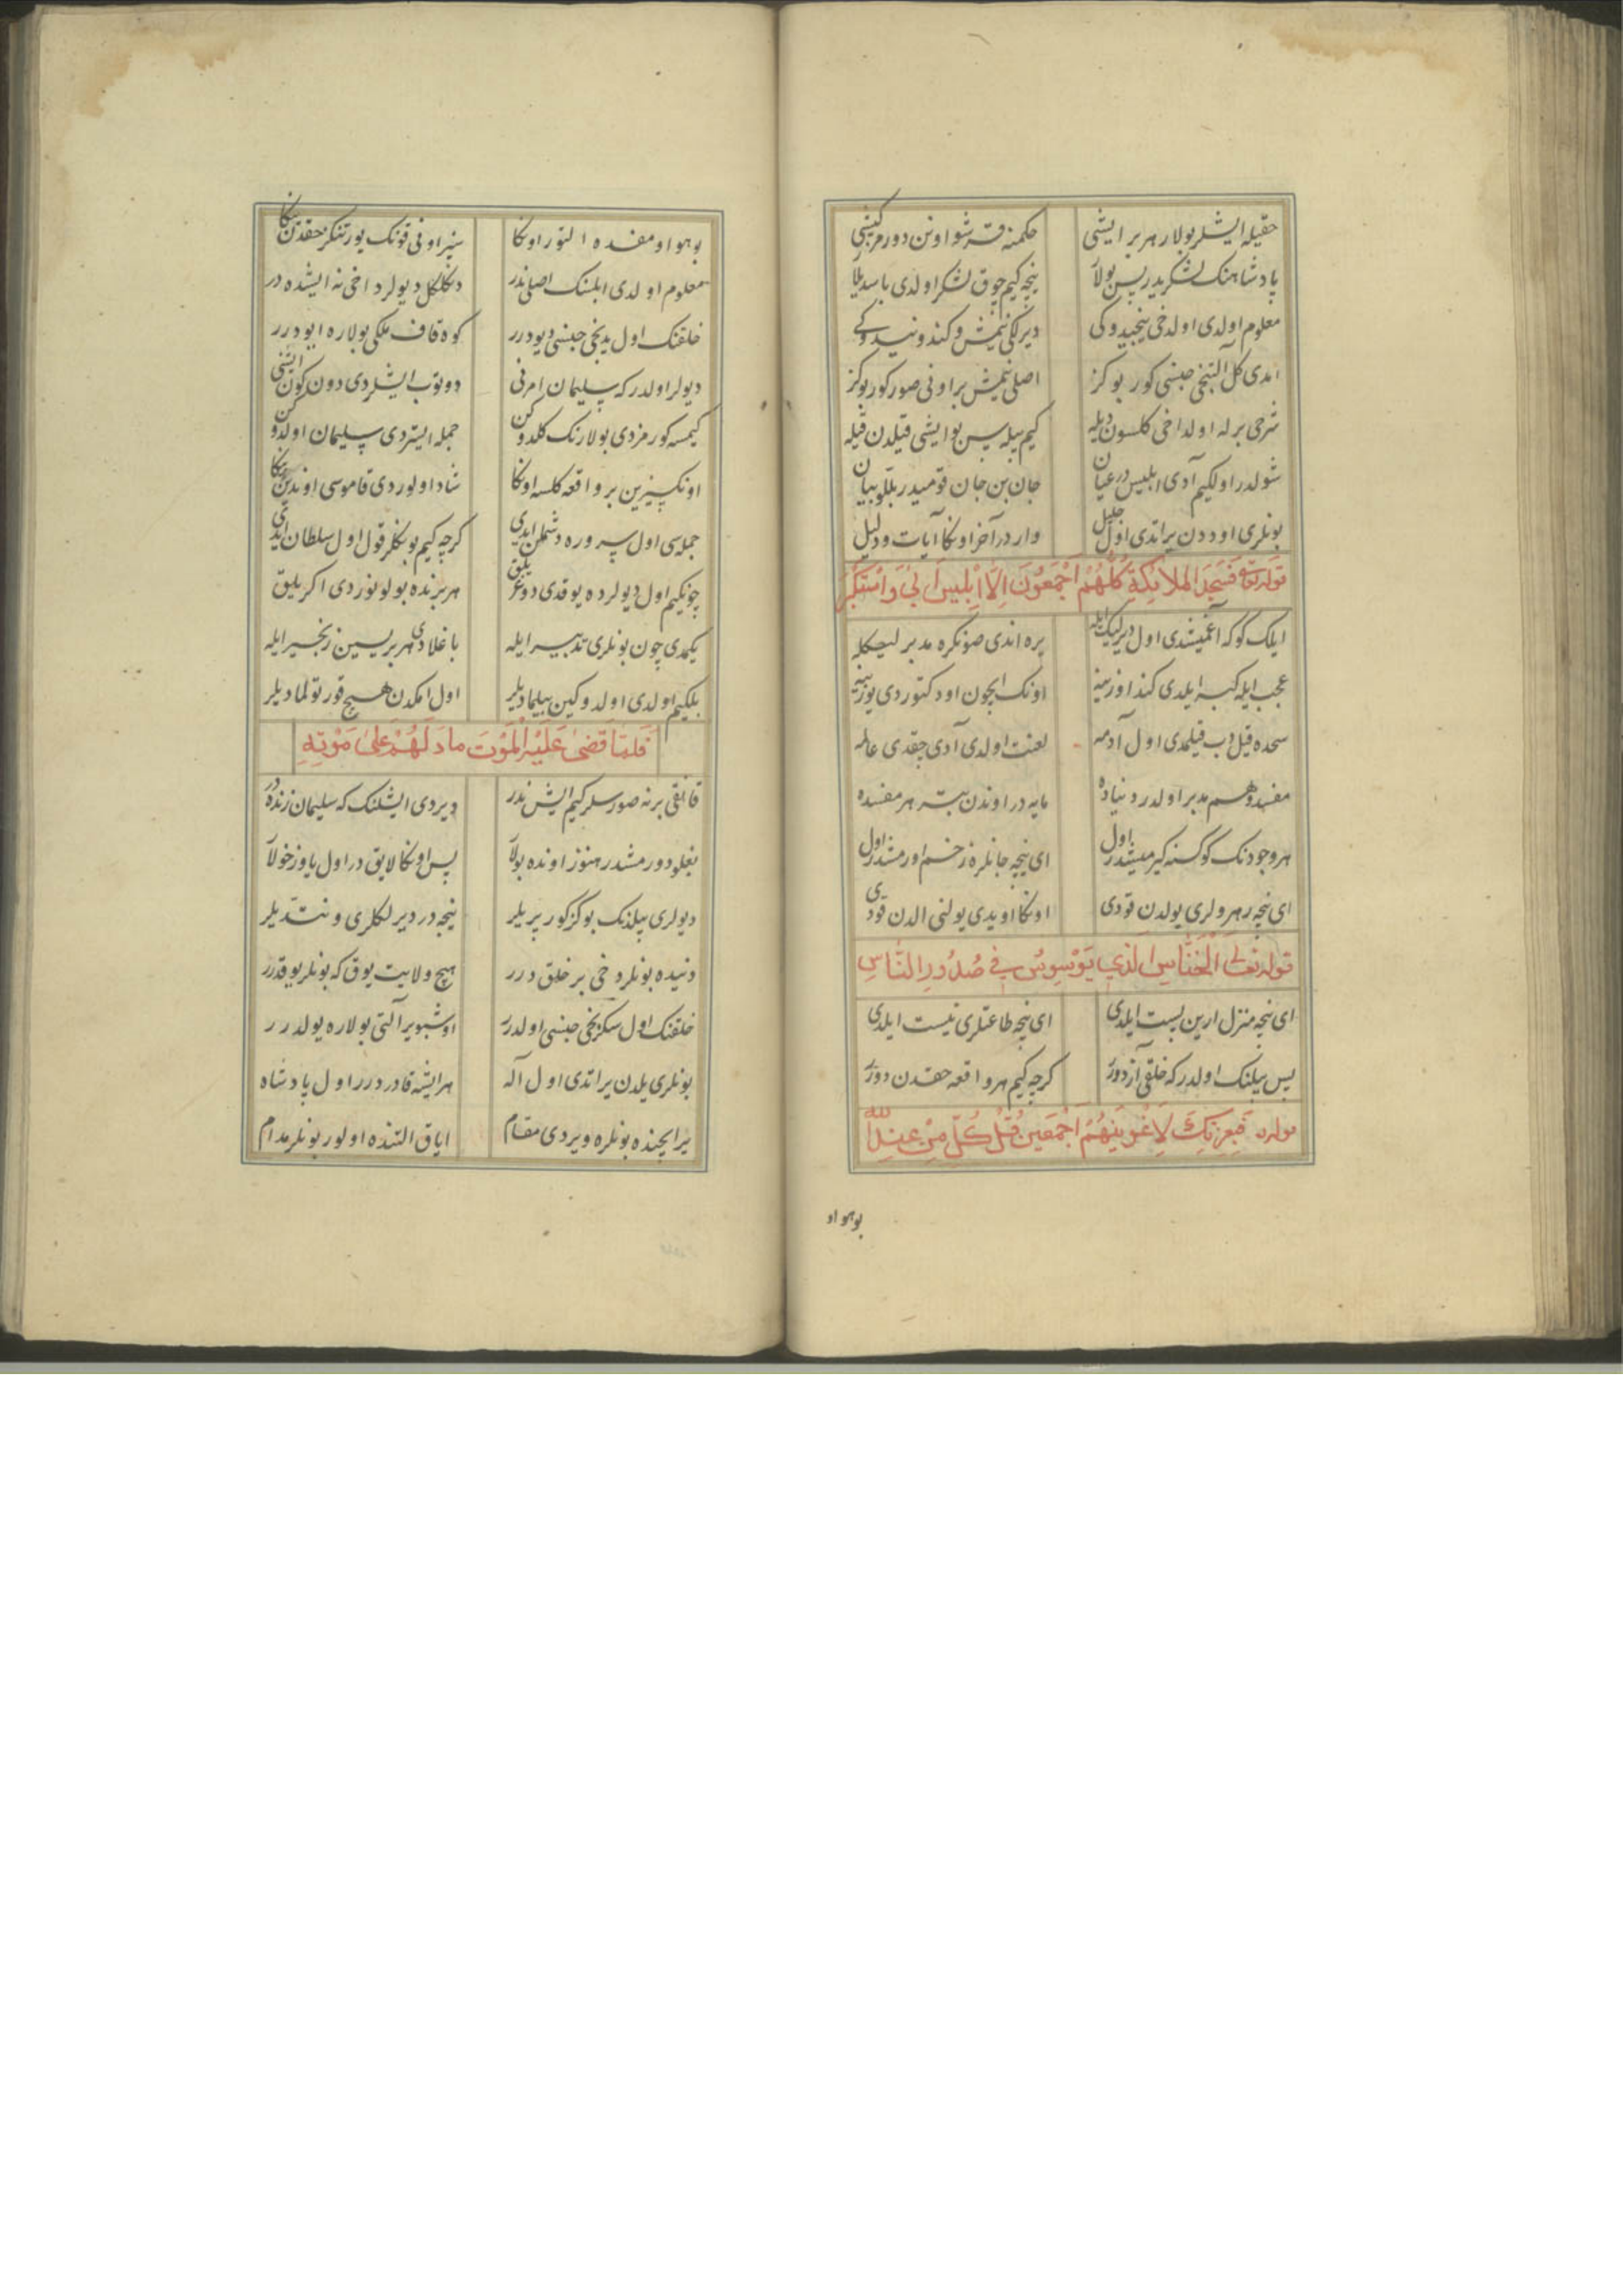 حقیله ایشلر بولار هر بر ایشی حکمنه قرشو اونن دورمز کیشی
پادشاهنک لشکریدر پس بولا نیجه کیم چوق لشکر اولدی باسدیلا
معلوم اولدی اولدخی نیجیدوکی دیرلکی نتمش و کندو نیدوکی
امدی کل آلتنجی جنسی کور بو کز اصلی نتمش بر اونی صور کور بو کز
شرحی برله اولداخی کلسون دیله کیم بیله سن بو ایشی قیلدن قیله
شولدر اولکیم آدی ابلیس در عیان جان بن جان قومیدر بللو بیان
بونلری اوددن یراتدی اول جلیل وار در آخر اونکا آیات و دلیل
قوله تعالی فَسَجَدَ الملاَئِکَةُ کُلُّهُمْ اَجْمَعُونَ اِلَّا اِبْلِیسَ اَبیٰ وَاسْتَکْبَرَ
ایلک کوکه آغمیشدی اول دیرلیک ایله یره اندی صونکره مدبرلیک ایله
عجب ایله کبر ایلدی کند اوزینه اونک ایچون اود کتوردی یوزینه
سجده قیل دب قیلمدی اول آدمه لعنت اولدی آدی چقدی عالمه
مفسد و هم مدبر اولدر دنیاده مایه در اوندن بتر هر مفسده
هر وجودنک کوکسنه کیرمیشدر اول ای نیجه جانلره زخم اورمشدر اول
ای نیجه رهرولری یولدن قودی اونکا اویدی یولنی الدن قودی
قوله تعالی اَلْخَنَّاسِ الَّذِی یُوَسْوِسُ فِی صُدُورِ النَّاسِ
ای نیجه منزل ارین پست ایلدی ای نیجه طاعتلری نیست ایلدی
پس بیلنک اولدر که خلقی آزدورر کرچه کیم هر واقعه حقدن دورر
قوله فَبِعِزَّتِکَ لَاُغْوِیَنَّهُمْ اَجْمَعِینَ قُلْ کُلٌّ مِنْ عِنْدِ اللّٰه
بو هواو
بو هوا و مفسده التور اونکا سیز اونی قونک یور تنکر حقدن ینکا
معلوم اولدی ابلسنک اصلی ندر دنکلکل دیولر داخی نه ایشده در
خلقنک اول یدنجی جنسی دیودرر کوه قاف ملکی بولاره ایودرر
دیولر اولدر که سلیمان امرنی دوتوب ایشلردی دون کون ایشنی
کیمسه کورمزدی بولارنک کلدوکن جمله ایستردی سلیمان اولدوکن
اونکسیزین بر واقعه کلسه اونکا شاد اولوردی قاموسی اوندین ینکا
جمله سی اول سروره دشمن ایدی کرچه کیم بونکلر قول اول سلطان ایدی
چونکیم اول دیولرده یوقدی دوغریلق هر برنده بولونوردی اکریلق
یکمدی چون بونلری تدبیر ایله باغلادی هر بریسین زنجیر ایله
بلکیم اولدی اولدوکین بیلمادیلر اول امکدن هیچ قورتولمادیلر
فَلَمَّا قَضَیٰ عَلَیْهِ الْمَوْتَ مَا دَلَّهُمْ عَلیٰ مَوْتِهِ
قانقی برنه صورسلر کیم ایش ندر دیردی ایشلنک که سلیمان زنده در
بغلو دورمشدر هنوز اونده بولا پس اونکا لایق در اول یاوز خولا
دیولری بیلدنک بو کز کور پریلر نیجه در دیرلکلری و نتدیلر
دنیده بونلر دخی بر خلق درر هیچ ولایت یوق که بونلر یوقدرر
خلقنک اول سکزنجی جنسی اولدرر اوشبو یر آلتی بولاره یولدرر
بونلری یلدن یراتدی اول آله هر ایشه قادر درر اول پادشاه
یر ایچنده بونلره ویردی مقام ایاق التنده اولور بونلر مدام